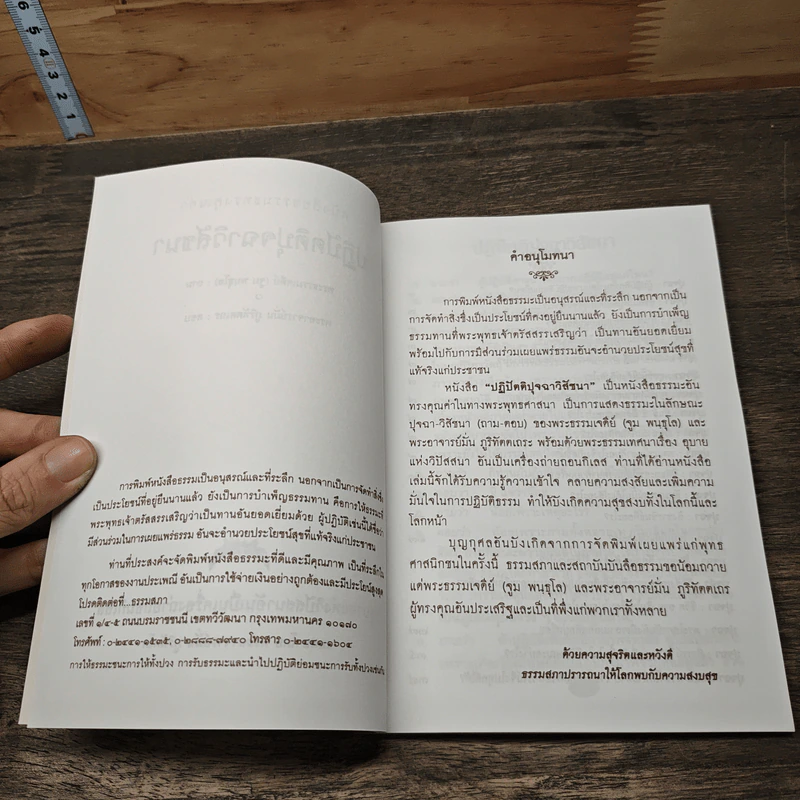 การพิมพ์หนังสือธรรมะเป็นอนุสรณ์และที่ระลึก นอกจากเป็นการจัดทำสิ่งซึ่ง
เป็นประโยชน์ที่อยู่ยืนนานแล้ว ยังเป็นการบำเพ็ญธรรมทาน คือการให้ธรรมะที่
พระพุทธเจ้าตรัสสรรเสริญว่าเป็นทานอันยอดเยี่ยมด้วย ผู้ปฏิบัติเช่นนี้ได้ชื่อว่า
มีส่วนร่วมในการเผยแพร่ธรรม อันจะอำนวยประโยชน์สุขที่แท้จริงแก่ประชาชน
ท่านที่ประสงค์จะจัดพิมพ์หนังสือธรรมะที่ดีและมีคุณภาพ เป็นที่ระลึกใน
ทุกโอกาสของงานประเพณี อันเป็นการใช้จ่ายเงินอย่างถูกต้องและมีประโยชน์สูงสุด
โปรดติดต่อที่...ธรรมสภา
เลขที่ ๑/๔-๕ ถนนบรมราชชนนี เขตทวีวัฒนา กรุงเทพมหานคร ๑๐๑๗๐
โทรศัพท์ : ๐-๒๔๔๑-๑๕๓๕, ๐-๒๘๘๘-๗๙๔๐ โทรสาร ๐-๒๔๔๑-๑๖๐๔
การให้ธรรมะชนะการให้ทั้งปวง การรับธรรมะและนำไปปฏิบัติย่อมชนะการรับทั้งปวงเช่นกัน
คำอนุโมทนา
การพิมพ์หนังสือธรรมะเป็นอนุสรณ์และที่ระลึก นอกจากเป็น
การจัดทำสิ่งซึ่งเป็นประโยชน์ที่คงอยู่ยืนนานแล้ว ยังเป็นการบำเพ็ญ
ธรรมทานที่พระพุทธเจ้าตรัสสรรเสริญว่า เป็นทานอันยอดเยี่ยม
พร้อมไปกับการมีส่วนร่วมเผยแพร่ธรรมอันจะอำนวยประโยชน์สุขที่
แท้จริงแก่ประชาชน
หนังสือ “ปฏิปัตติปุจฉาวิสัชนา” เป็นหนังสือธรรมะอัน
ทรงคุณค่าในทางพระพุทธศาสนา เป็นการแสดงธรรมะในลักษณะ
ปุจฉา-วิสัชนา (ถาม-ตอบ) ของพระธรรมเจดีย์ (จูม พนฺธุโล) และ
พระอาจารย์มั่น ภูริทัตตเถระ พร้อมด้วยพระธรรมเทศนาเรื่อง อุบาย
แห่งวิปัสสนา อันเป็นเครื่องถ่ายถอนกิเลส ท่านที่ได้อ่านหนังสือ
เล่มนี้จักได้รับความรู้ความเข้าใจ คลายความสงสัยและเพิ่มความ
มั่นใจในการปฏิบัติธรรม ทำให้บังเกิดความสุขสงบทั้งในโลกนี้และ
โลกหน้า
บุญกุศลอันบังเกิดจากการจัดพิมพ์เผยแพร่แก่พุทธ
ศาสนิกชนในครั้งนี้ ธรรมสภาและสถาบันบันลือธรรมขอน้อมถวาย
แด่พระธรรมเจดีย์ (จูม พนฺธุโล) และพระอาจารย์มั่น ภูริทัตตเถระ
ผู้ทรงคุณอันประเสริฐและเป็นที่พึ่งแก่พวกเราทั้งหลาย
ด้วยความสุจริตและหวังดี
ธรรมสภาปรารถนาให้โลกพบกับความสงบสุข
6 5 4 3 2 1